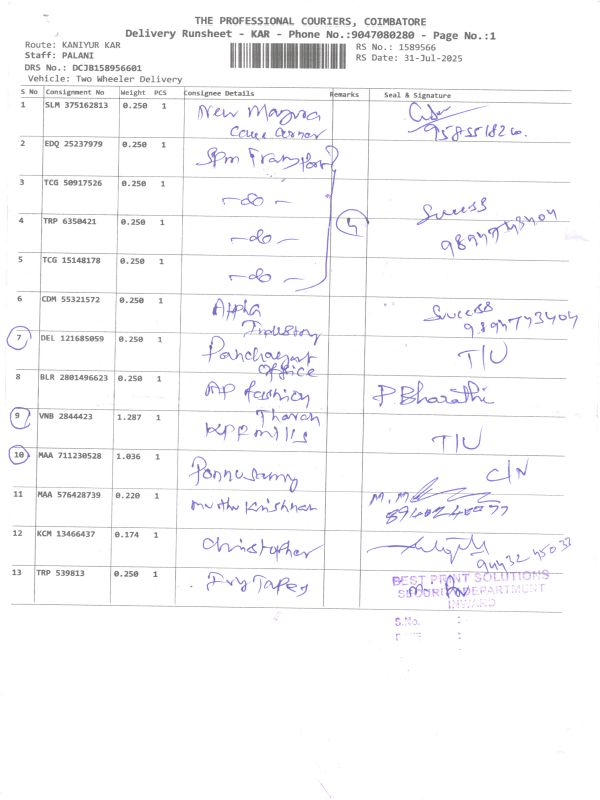 THE PROFESSIONAL COURIERS, COIMBATORE
Delivery Runsheet - KAR - Phone No.:9047080280 - Page No.:1
Route: KANIYUR KAR
RS No.: 1589566
Staff: PALANI
RS Date: 31-Jul-2025
DRS No.: DCJB158956601
Vehicle: Two Wheeler Delivery
S No Consignment No Weight PCS Consignee Details Remarks Seal & Signature
1 SLM 375162813 0.250 1 New
Corner
2 EDQ 25237979 0.250 1 Spm Transport
3 TCG 50917526 0.250 1 -do-
4 TRP 6350421 0.250 1 -do- 4 Success
5 TCG 15148178 0.250 1 -do-
6 CDM 55321572 0.250 1 Alpha Success
Industry
7 DEL 121685059 0.250 1 Panchayat T/U
Office
8 BLR 2801496623 0.250 1 AP fashion P Bharathi
9 VNB 2844423 1.287 1 Tharan T/U
KPR mills
10 MAA 711230528 1.036 1 Ponnusamy C/N
11 MAA 576428739 0.220 1 Muthu Krishnan
12 KCM 13466437 0.174 1 Christopher
13 TRP 539813 0.250 1 Ivy Tapes
BEST PRINT SOLUTIONS
SECURITY DEPARTMENT
INWARD
S.No. :